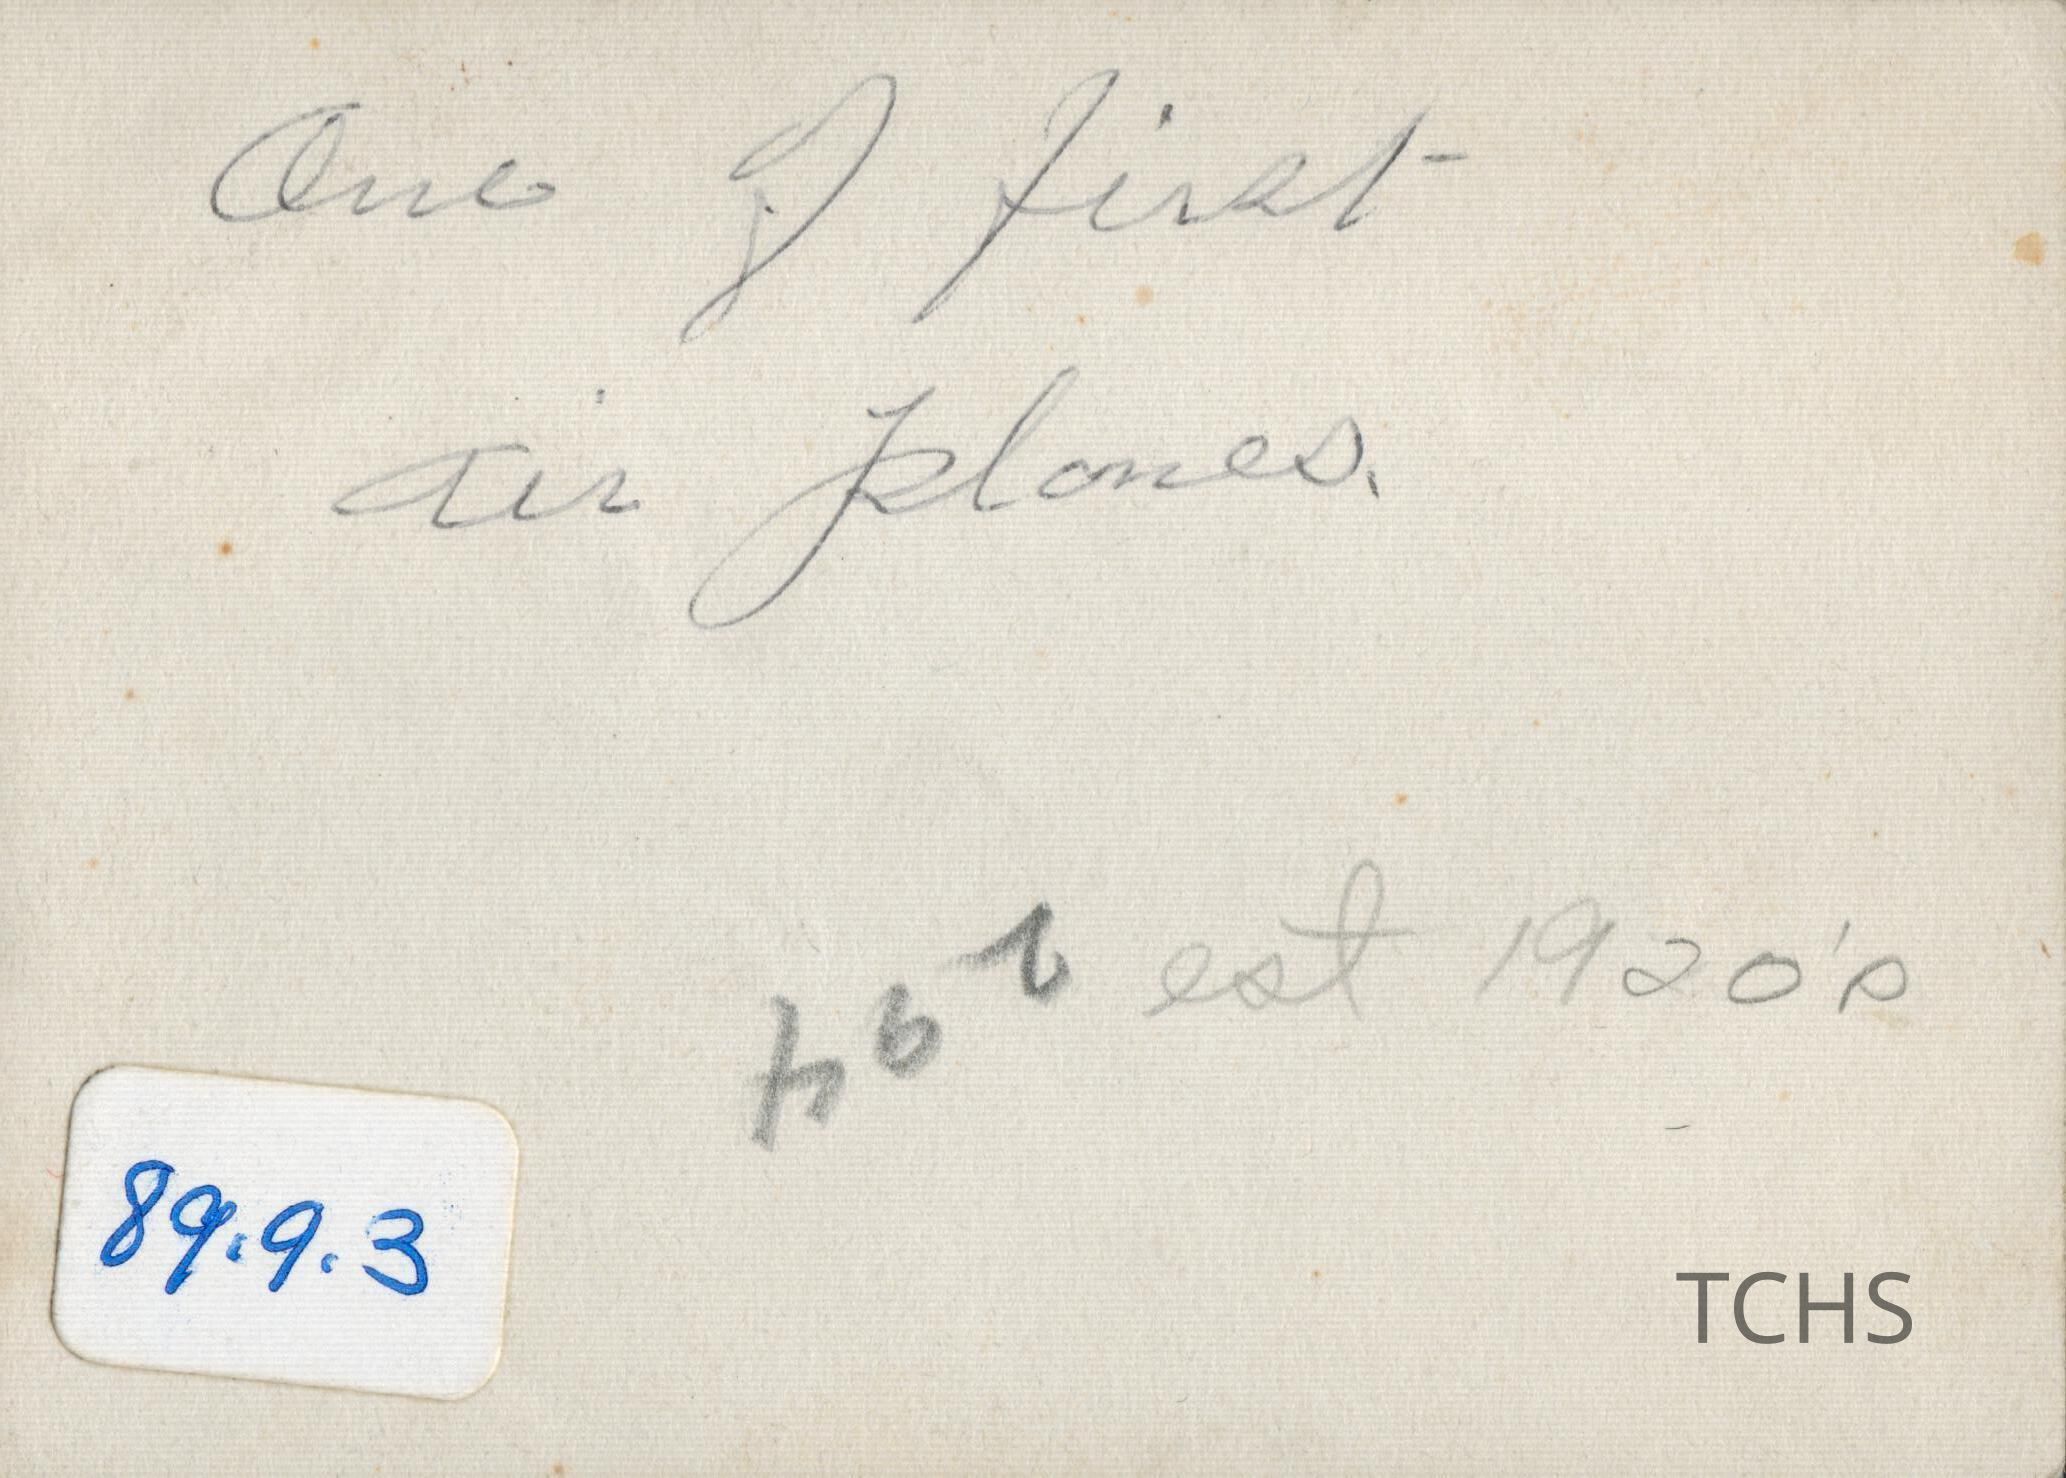 One of first
air planes.
est 1920's
89.9.3
TCHS